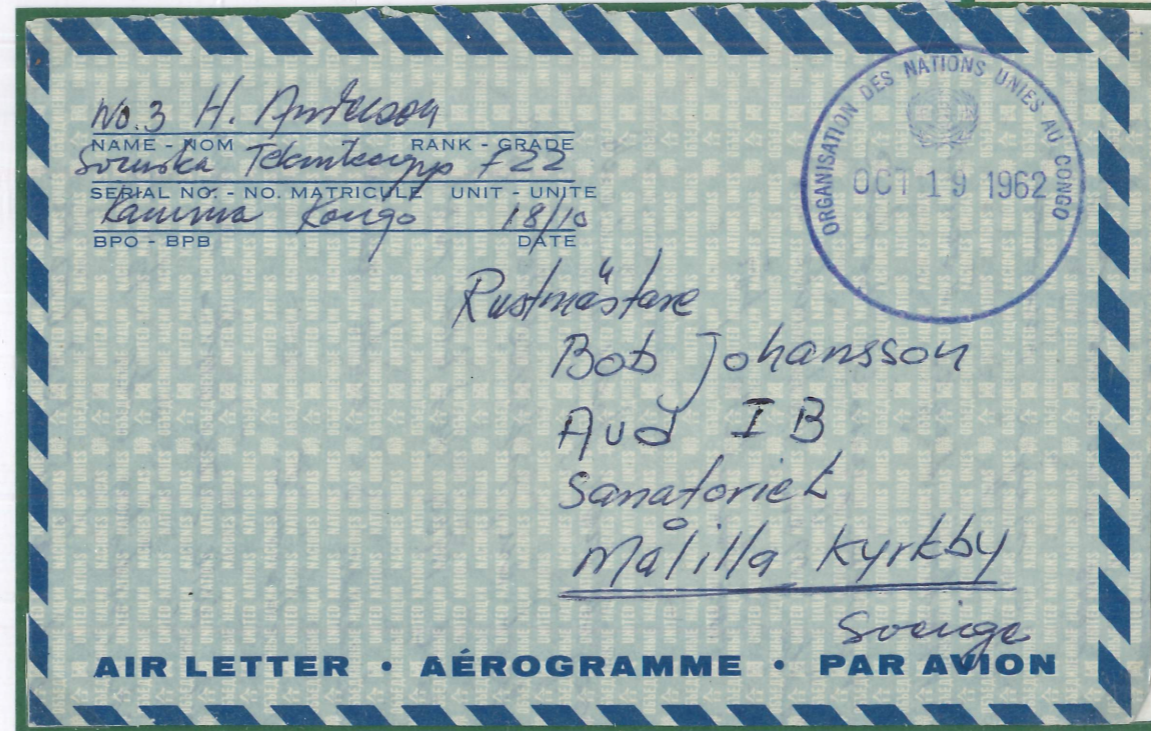 No. 3 H. Anderson
NAME - NOM RANK - GRADE
Svenska Teknikergrupp F22
SERIAL NO. - NO. MATRICULE UNIT - UNITE
Kamina Kongo 18/10
BPO - BPB DATE
ORGANISATION DES NATIONS UNIES AU CONGO
OCT 19 1962
Rustmästare
Bob Johansson
Avd I B
Sanatoriet
Målilla Kyrkby
Sverige
AIR LETTER • AÉROGRAMME • PAR AVION